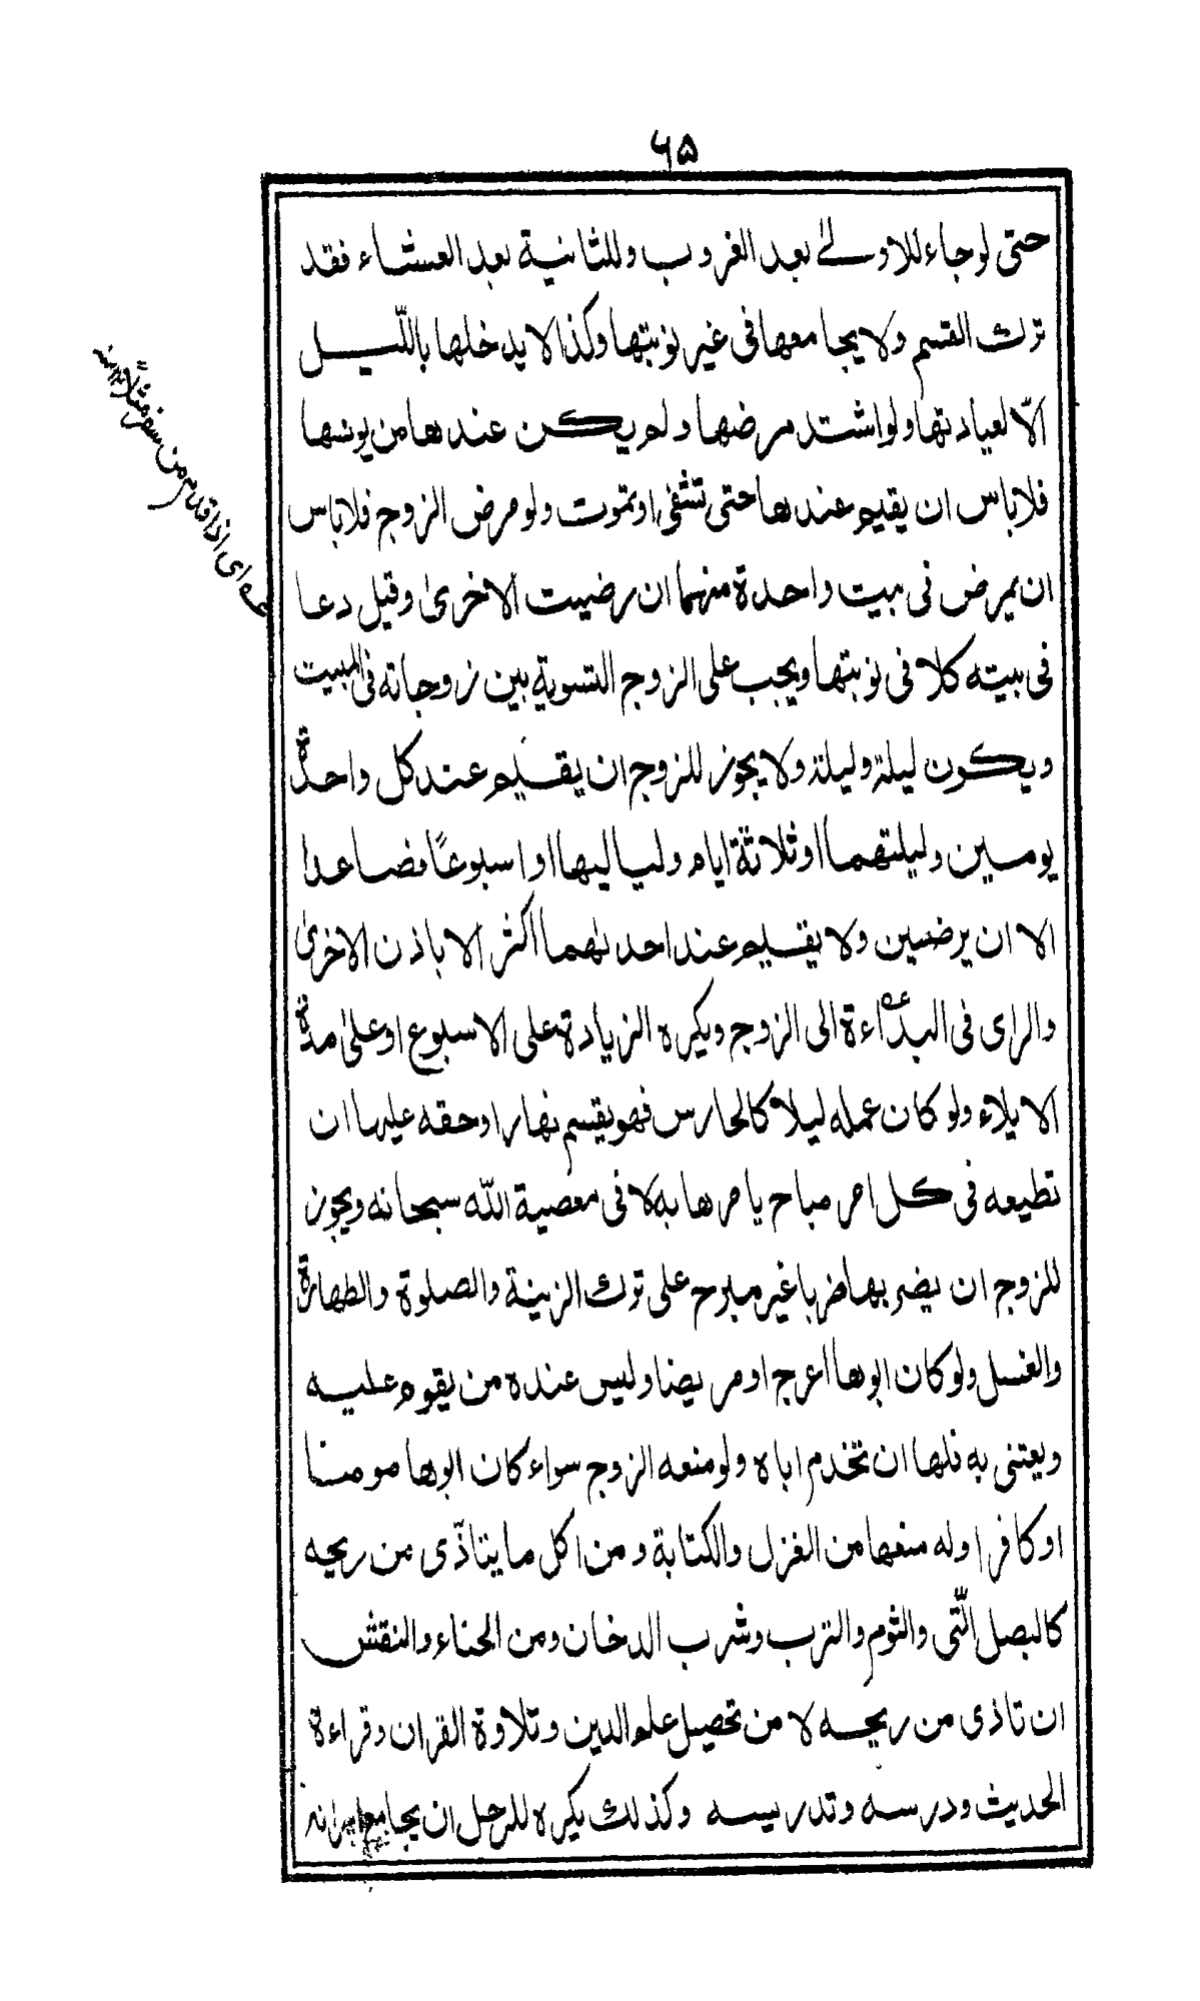 ۶۵
حتى لو جاء للاولى بعد الغروب وللثانية بعد العشاء فقد
ترك القسم ولا يجامعها فى غير نوبتها وكذا لا يدخلها بالليل
الّا لعيادتها ولو اشتد مرضها ولم يكن عندها من يونسها
فلا باس ان يقيم عندها حتى تشفى او تموت ولو مرض الزوج فلا باس
ان يمرض فى بيت واحدة منهما ان رضيت الاخرىٰ وقيل دعا
فى بيته كلا فى نوبتها ويجب على الزوج التسوية بين زوجاته فى المبيت
ويكون ليلة وليلة ولا يجوز للزوج ان يقيم عند كل واحدة
يومين وليلتهما او ثلاثة ايام ولياليها او اسبوعًا فصاعدا
الا ان يرضين ولا يقيم عند احدٰهما اكثر الا باذن الاخرىٰ
والراى فى البداءة الى الزوج ويكره الزيادة على الاسبوع او علىٰ مدة
الايلاء ولو كان عمله ليلا كالحارس فهو يقسم نهارا وحقه عليها ان
تطيعه فى كل امر مباح يامرها به لا فى معصية الله سبحانه ويجوز
للزوج ان يضربها ضربا غير مبرح على ترك الزينة والصلوة والطهارة
والغسل ولو كان ابوها اعرج او مريضا وليس عنده من يقوم عليه
ويعتنى به فلها ان تخدم اباه ولو منعه الزوج سواء كان ابوها مومنا
او كافرا وله منعها من الغزل والكتابة ومن اكل ما يتاذّى من ريحه
كالبصل الّتى والثوم والترب وشرب الدخان ومن الحناء والنقش
ان تاذى من ريحه لا من تحصيل علم الدين وتلاوة القران وقراءة
الحديث ودرسه وتدريسه وكذلك يكره للرجل ان يجامع امرانه
عه اى اذا قدم من سفر مثلاً ۱۲ منه